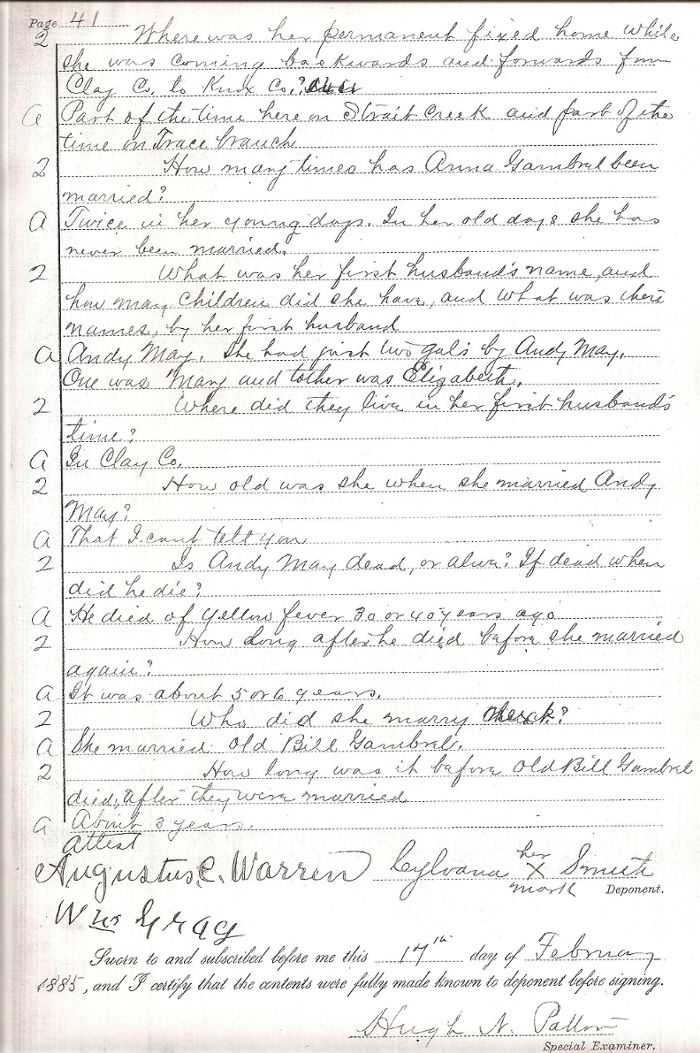 Page 41
Q Where was her permanent fixed home while
she was coming backwards and forwards from
Clay Co. to Knox Co.?
A Part of the time here on Strait Creek and part of the
time on Trace branch
Q How many times has Anna Gambrel been
married?
A Twice in her young days. In her old days she has
never been married.
Q What was her first husband's name, and
how many children did she have, and what was there
names, by her first husband
A Andy May. She had just two gals by Andy May.
One was Mary and tother was Elizabeth.
Q Where did they live in her first husband's
time?
A In Clay Co.
Q How old was she when she married Andy
May?
A That I cant tell you
Q Is Andy May dead, or alive? If dead when
did he die?
A He died of Yellow fever 30 or 40 years ago
Q How long after he died before she married
again?
A It was about 5 or 6 years.
Q Who did she marry next?
A She married Old Bill Gambrel.
Q How long was it before Old Bill Gambrel
died, after they were married
A About 3 years.
Attest
Augustus C. Warren Sylvana her X mark Smith
Deponent.
Wm Gray
Sworn to and subscribed before me this 17th day of February
1885, and I certify that the contents were fully made known to deponent before signing.
Hugh N.
Special Examiner.